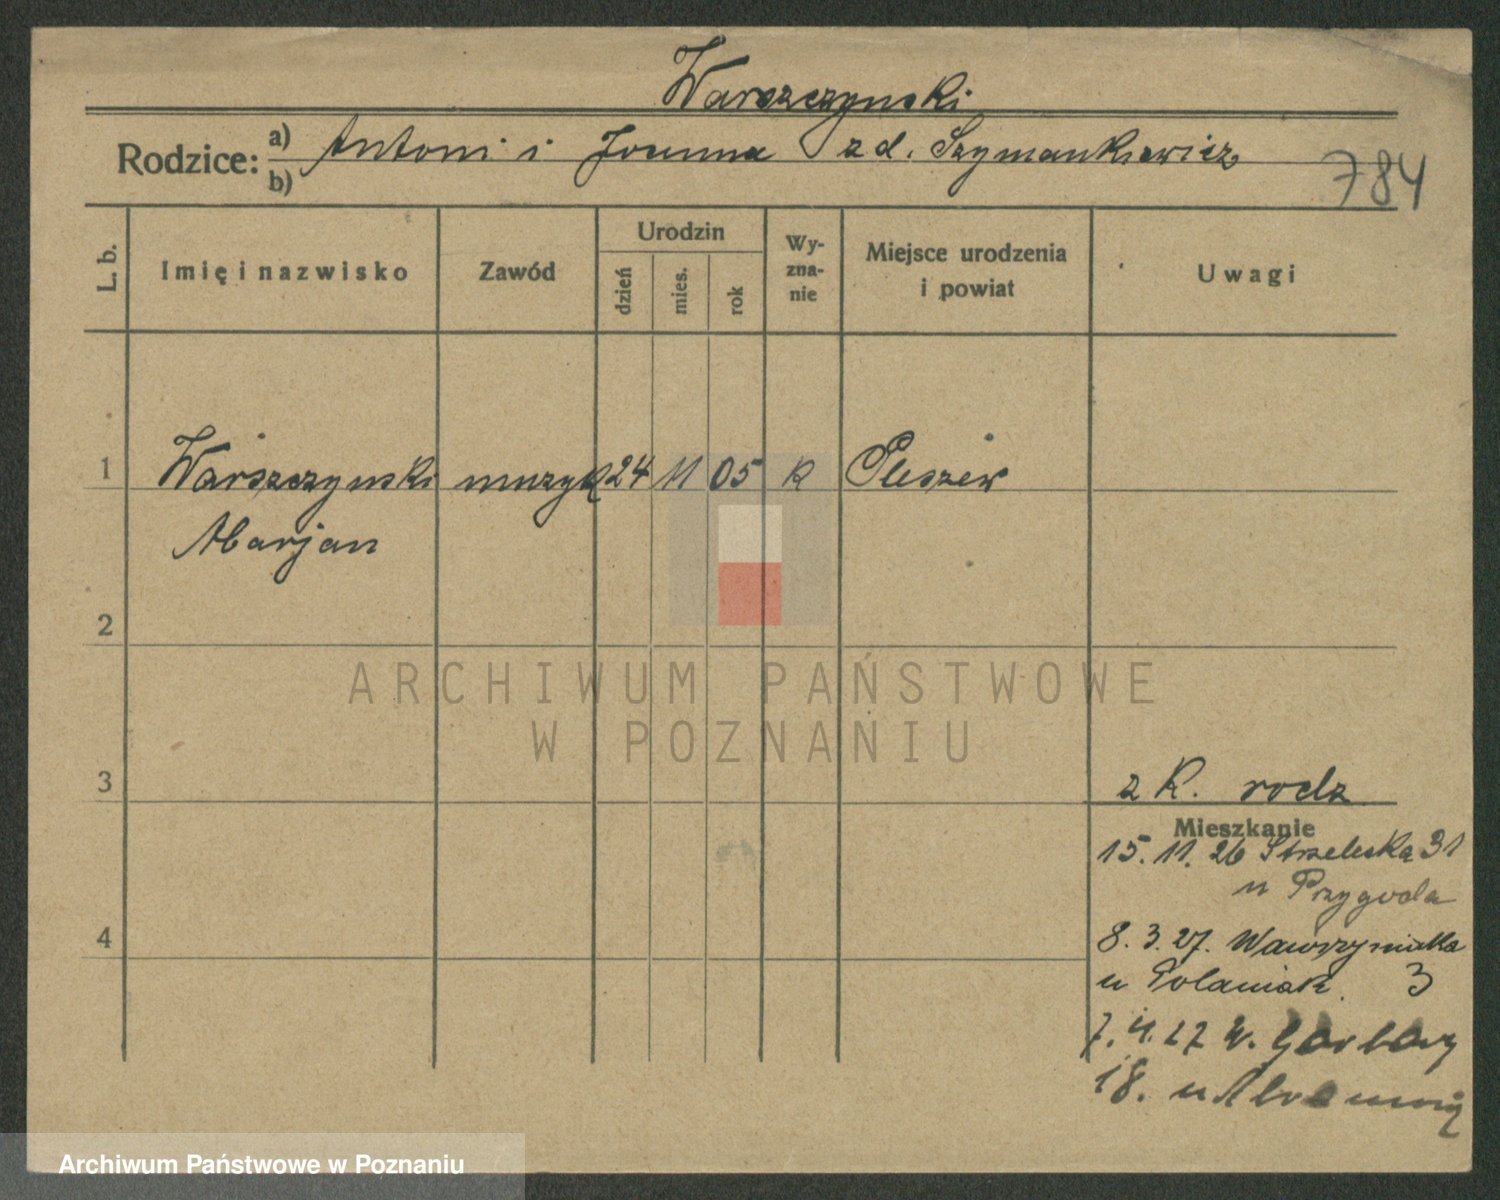 Warszczynski
Rodzice: a) Antoni i Joanna zd. Szymankiewicz
b)
784
L. b.
Imię i nazwisko
Zawód
Urodzin
dzień
mies.
rok
Wy-
zna-
nie
Miejsce urodzenia
i powiat
Uwagi
1 Warszczynski muzyk 24 11 05 k Pleszew
Marjan
2
3
z K. rodz
Mieszkanie
15. 11. 26 Strzelecka 31
u Przygoda
4
8. 3. 27. Wawrzyniaka
u Polaniak. 3
7. 4. 27 W. Garbary
18. u
ARCHIWUM PAŃSTWOWE
W POZNANIU
Archiwum Państwowe w Poznaniu